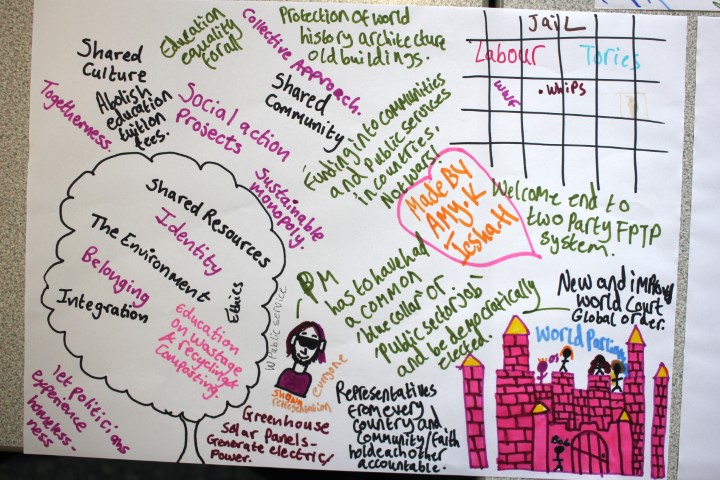 Education
equality
for all
Collective Approach.
Protection of world
history architecture
old buildings.
JaiL
Labour
Tories
WHIPS
Shared
Culture
Togetherness
Abolish
education
tuition
fees.
Social action
Projects
Shared
Community
Funding into communities
and Public services
in countries,
Not wars!
Sustainable
monopoly.
Made By
Amy.K
Welcome end to
two Party FPTP
system.
Shared Resources
Identity
The Environment
Belonging
Integration
Ethics
education
on wastage
& recycling &
Composting.
W Public service
PM
has to have had
a common
'blue collar' or
'Public sector job'
and be democratically
elected.
New and improved
world Court
Global order.
World Parliam
everyone
representation
let Politicians
experience
homeless-
ness
Greenhouse
Solar Panels-
Generate electric/
Power.
Representatives
from every
country and
community/faith
hold each other
accountable.